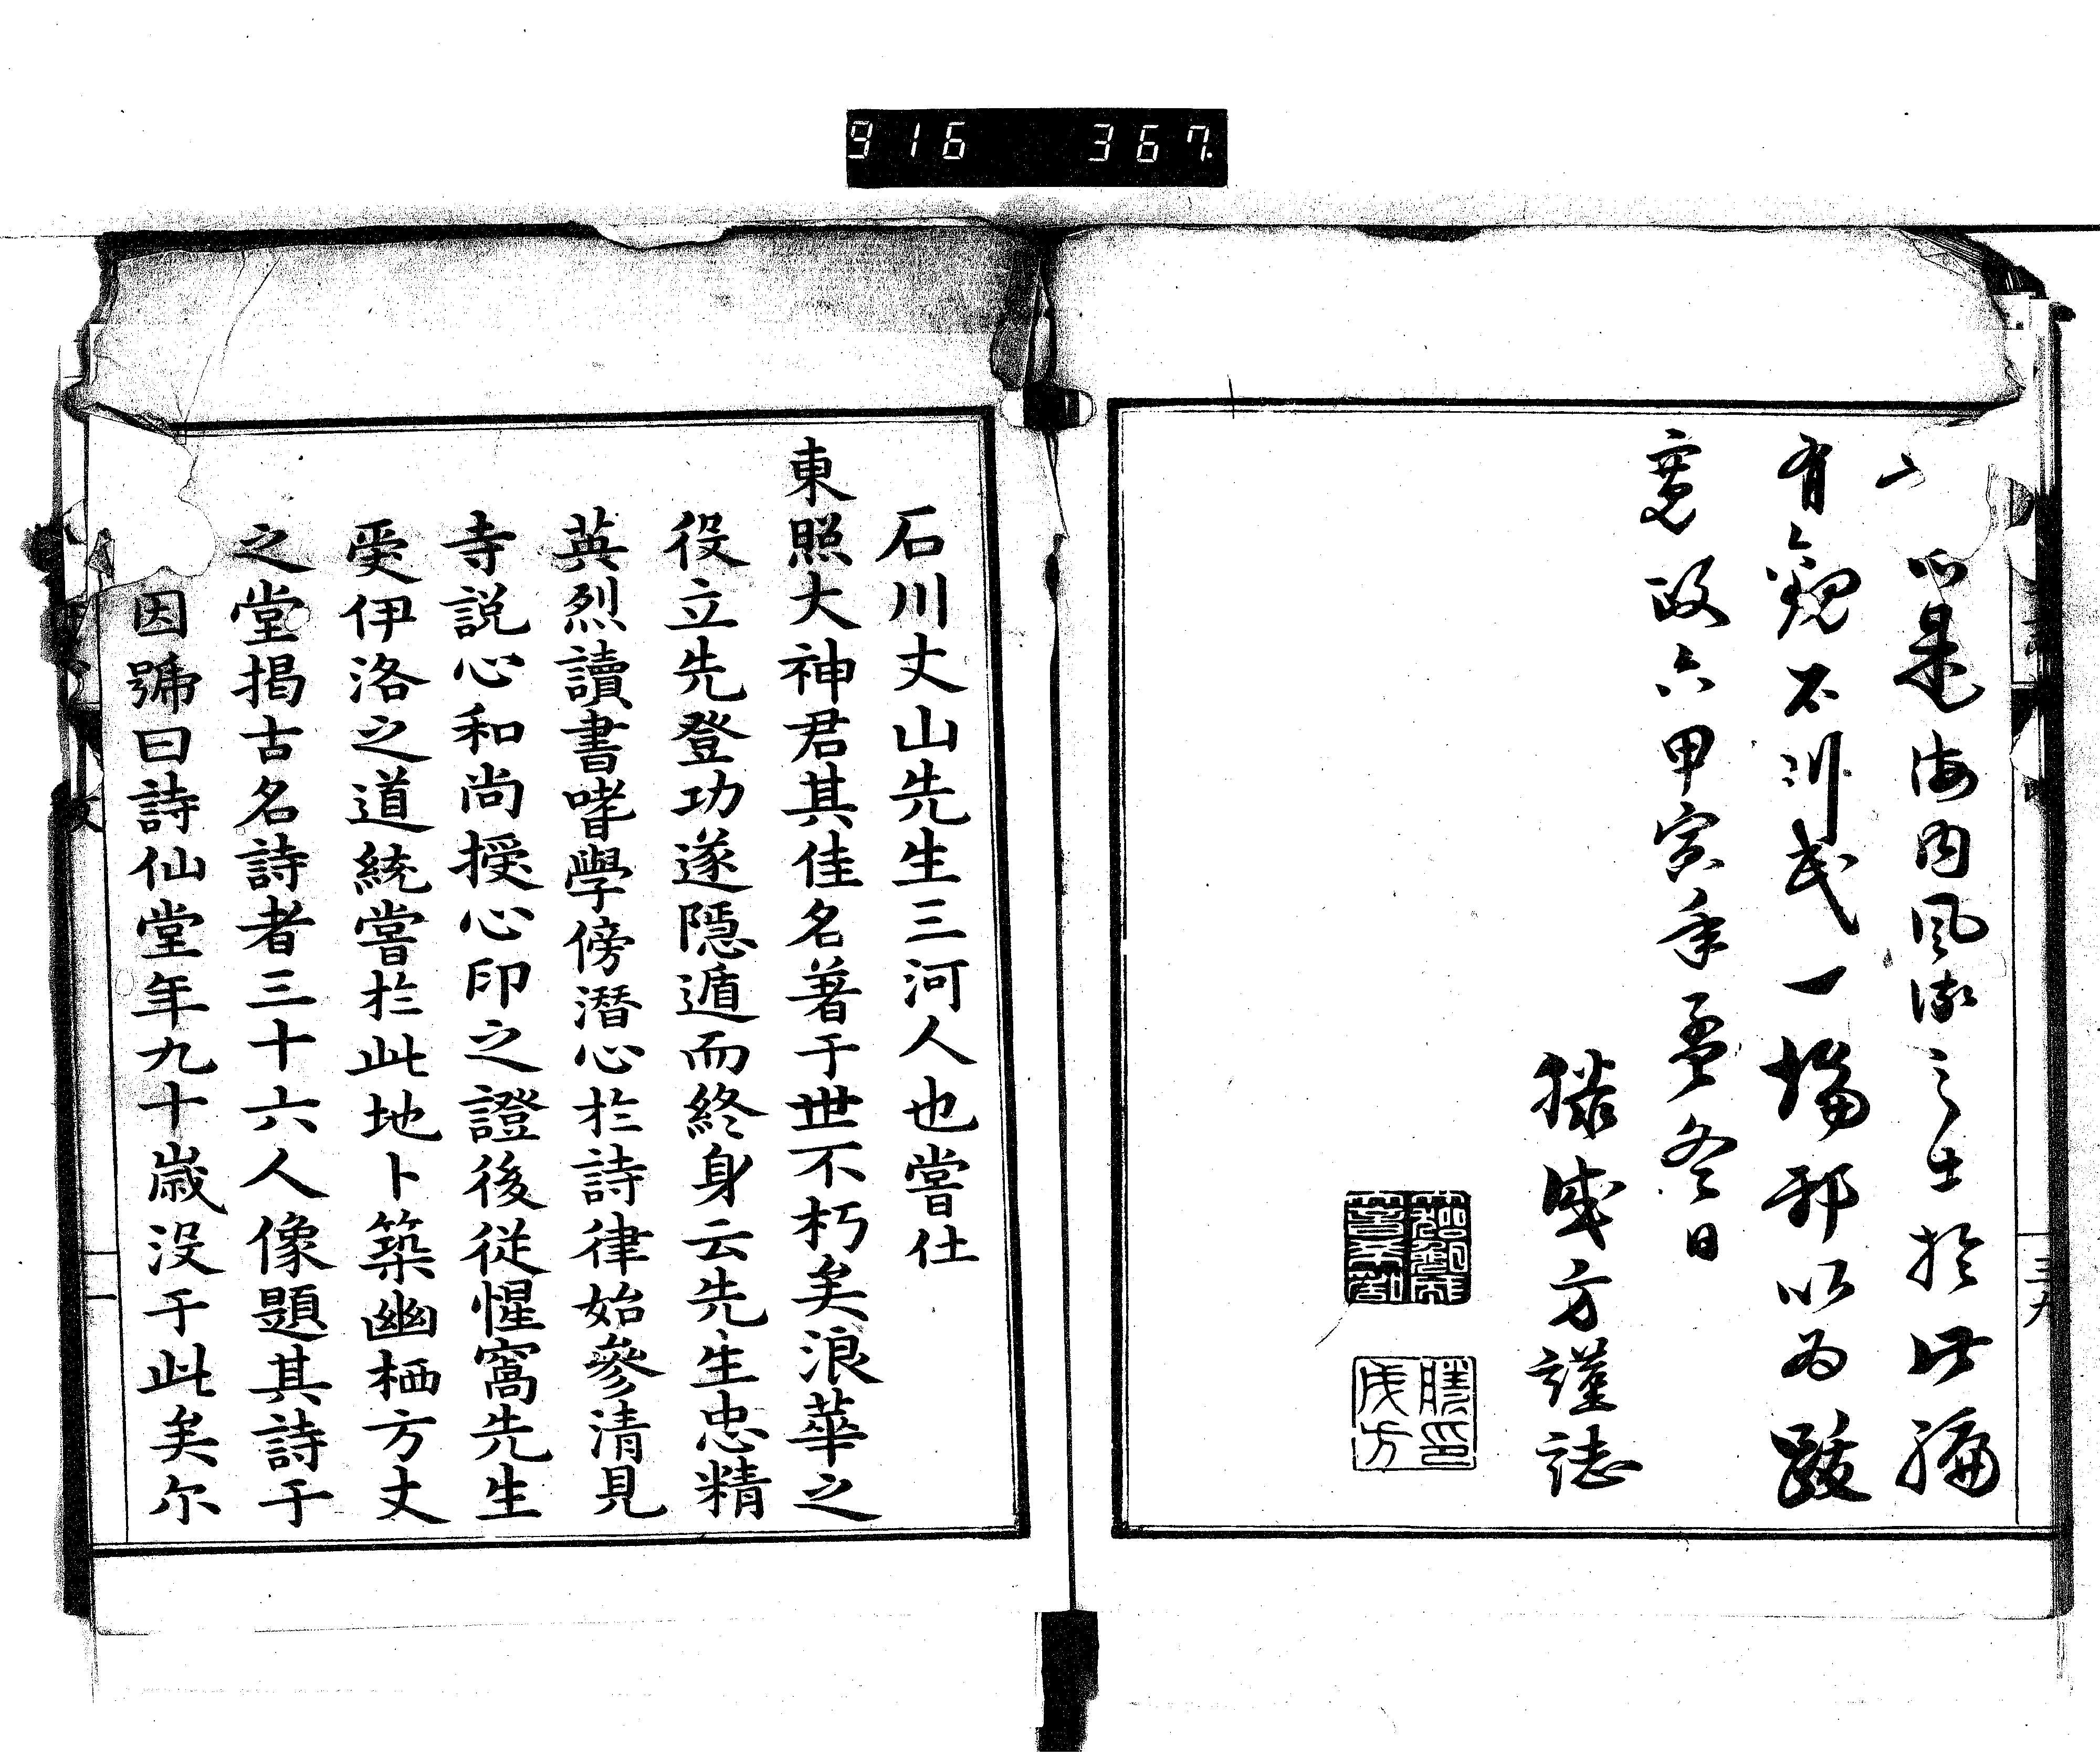 916 367
是海内風流之士於此編
有觀不爾或一場邪以為跋
寛政六甲寅年孟冬日
滕成方謹誌
滕印成方
三九
石川丈山先生三河人也嘗仕
東照大神君其佳名著于世不朽矣浪華之
役立先登功遂隠遁而終身云先生忠精
英烈讀書嗜學傍潜心於詩律始參清見
寺説心和尚授心印之證後従惺窩先生
受伊洛之道統嘗於此地卜築幽栖方丈
之堂掲古名詩者三十六人像題其詩于
因號曰詩仙堂年九十歳没于此矣尓